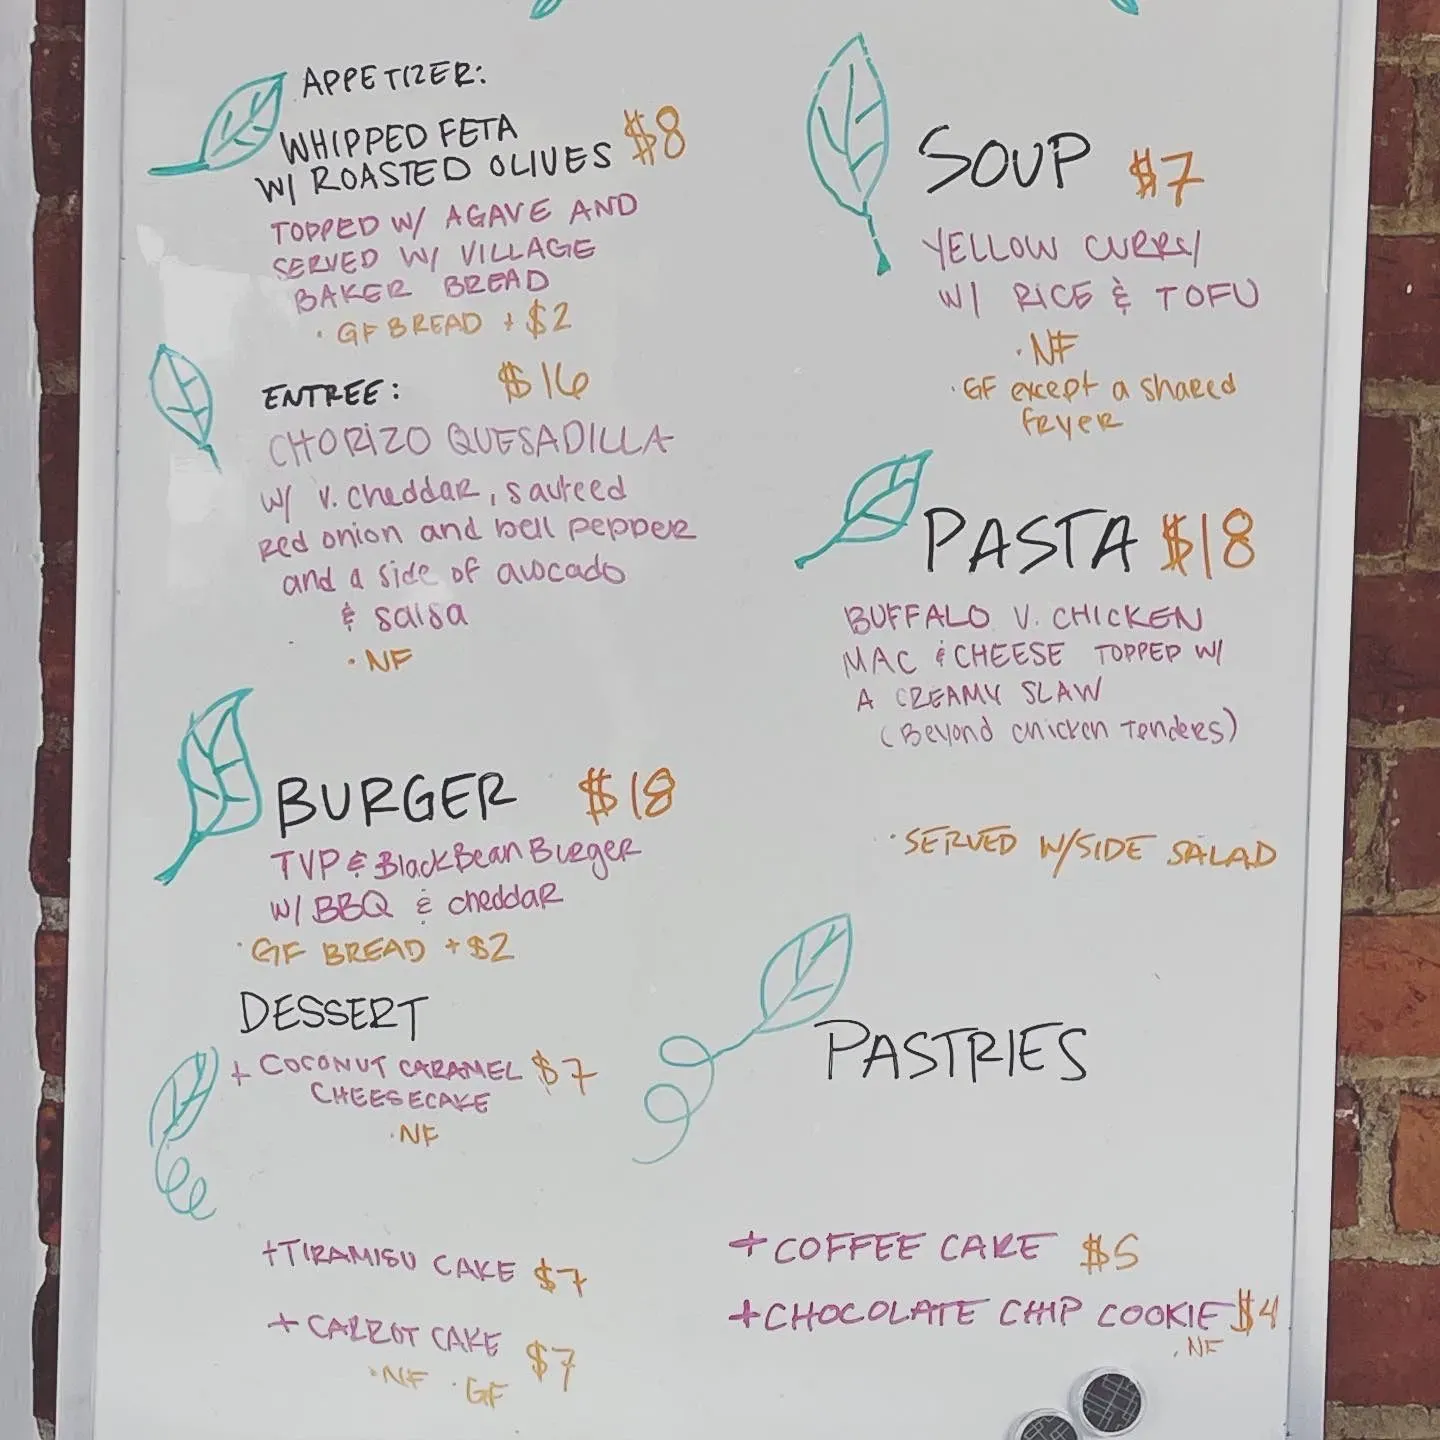 APPETIZER:
WHIPPED FETA $8
W/ ROASTED OLIVES
TOPPED W/ AGAVE AND
SERVED W/ VILLAGE
BAKER BREAD
· GF BREAD + $2
ENTREE: $16
CHORIZO QUESADILLA
W/ V. Cheddar, sauteed
Red onion and bell pepper
and a side of avocado
& salsa
· NF
BURGER $18
TVP & Black Bean Burger
W/ BBQ & cheddar
· GF BREAD + $2
DESSERT
+ COCONUT CARAMEL $7
CHEESECAKE
· NF
+ TIRAMISU CAKE $7
+ CARROT CAKE $7
· NF · GF
SOUP $7
YELLOW CURRY
W/ RICE & TOFU
· NF
· GF except a shared
fryer
PASTA $18
BUFFALO V. CHICKEN
MAC & CHEESE TOPPED W/
A CREAMY SLAW
(Beyond chicken Tenders)
· SERVED W/SIDE SALAD
PASTRIES
+ COFFEE CAKE $5
+ CHOCOLATE CHIP COOKIE $4
· NF